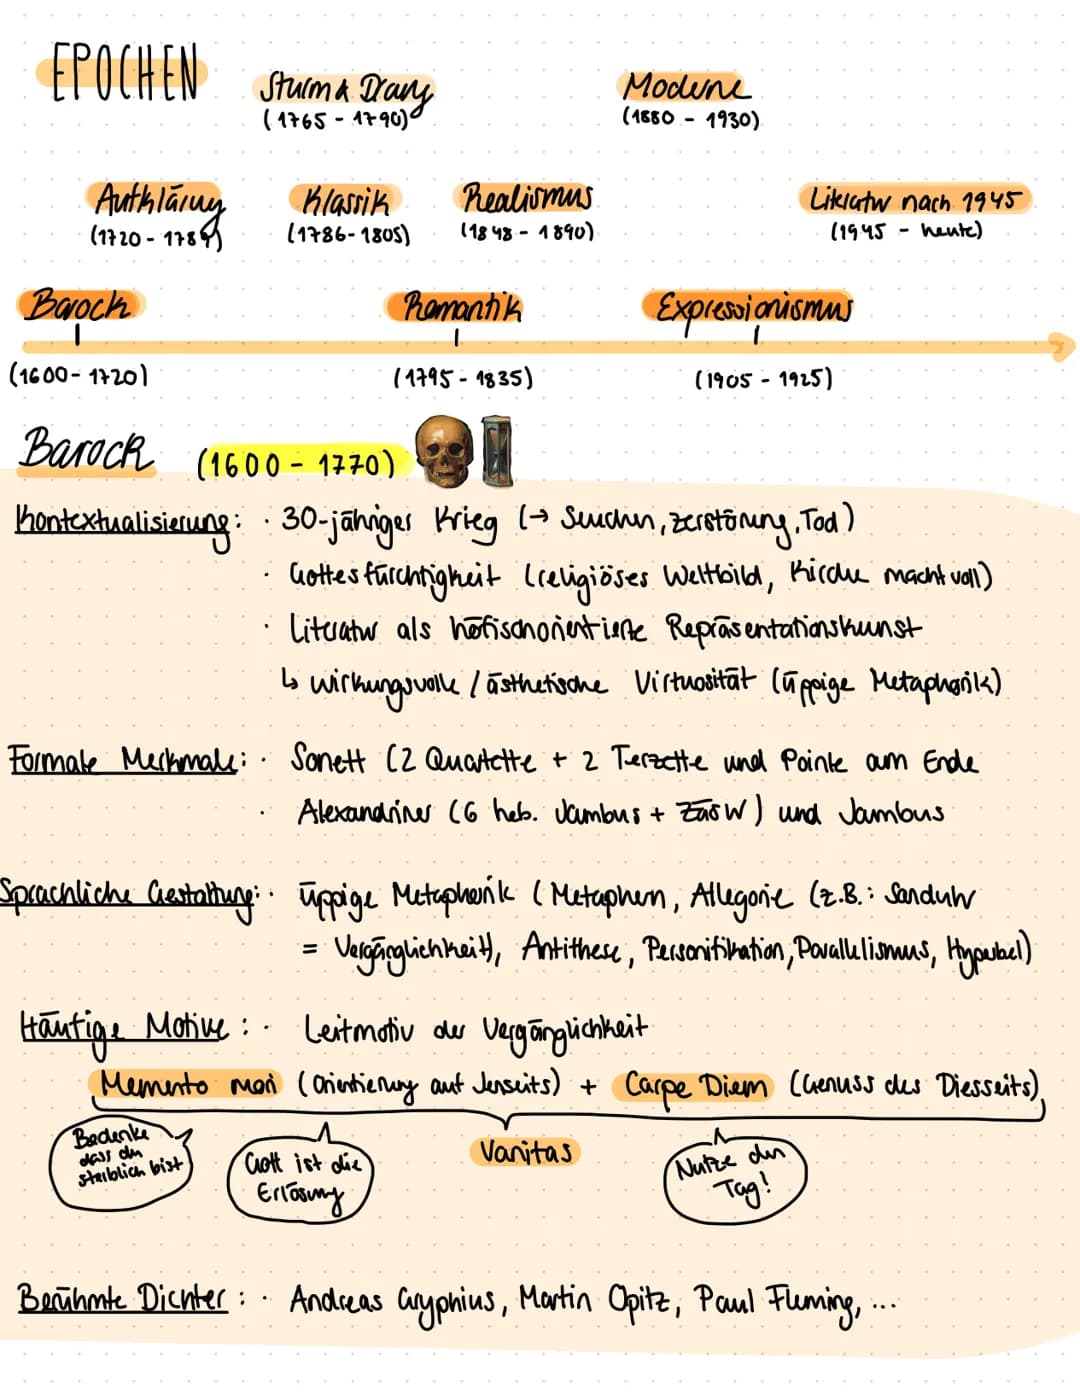 EPOCHEN
Sturm & Drang
(1765 - 1790)
Moderne
(1880 - 1930)
Aufklärung
(1720 - 1789)
Klassik
(1786-1805)
Realismus
(1848 - 1890)
Literatur nach 1945
(1945 - heute)
Barock
(1600 - 1720)
Romantik
(1795 - 1835)
Expressionismus
(1905 - 1925)
Barock (1600 - 1770)
Kontextualisierung: · 30-jähriger Krieg (→ Seuchen, Zerstörung, Tod)
· Gottesfürchtigkeit (religiöses Weltbild, Kirche machtvoll)
· Literatur als höfischorientierte Repräsentationskunst
↳ wirkungsvolle / ästhetische Virtuosität (üppige Metaphorik)
Formale Merkmale: · Sonett (2 Quartette + 2 Terzette und Pointe am Ende
· Alexandriner (6 heb. Jambus + Zäsur) und Jambus
Sprachliche Gestaltung: · üppige Metaphorik (Metaphern, Allegorie (z.B.: Sanduhr
= Vergänglichkeit), Antithese, Personifikation, Parallelismus, Hyperbel)
Häufige Motive: · Leitmotiv der Vergänglichkeit
Memento mori (Orientierung auf Jenseits) + Carpe Diem (Genuss des Diesseits)
Bedenke
dass du
sterblich bist
Gott ist die
Erlösung
Vanitas
Nutze den
Tag!
Berühmte Dichter: · Andreas Gryphius, Martin Opitz, Paul Fleming, ...